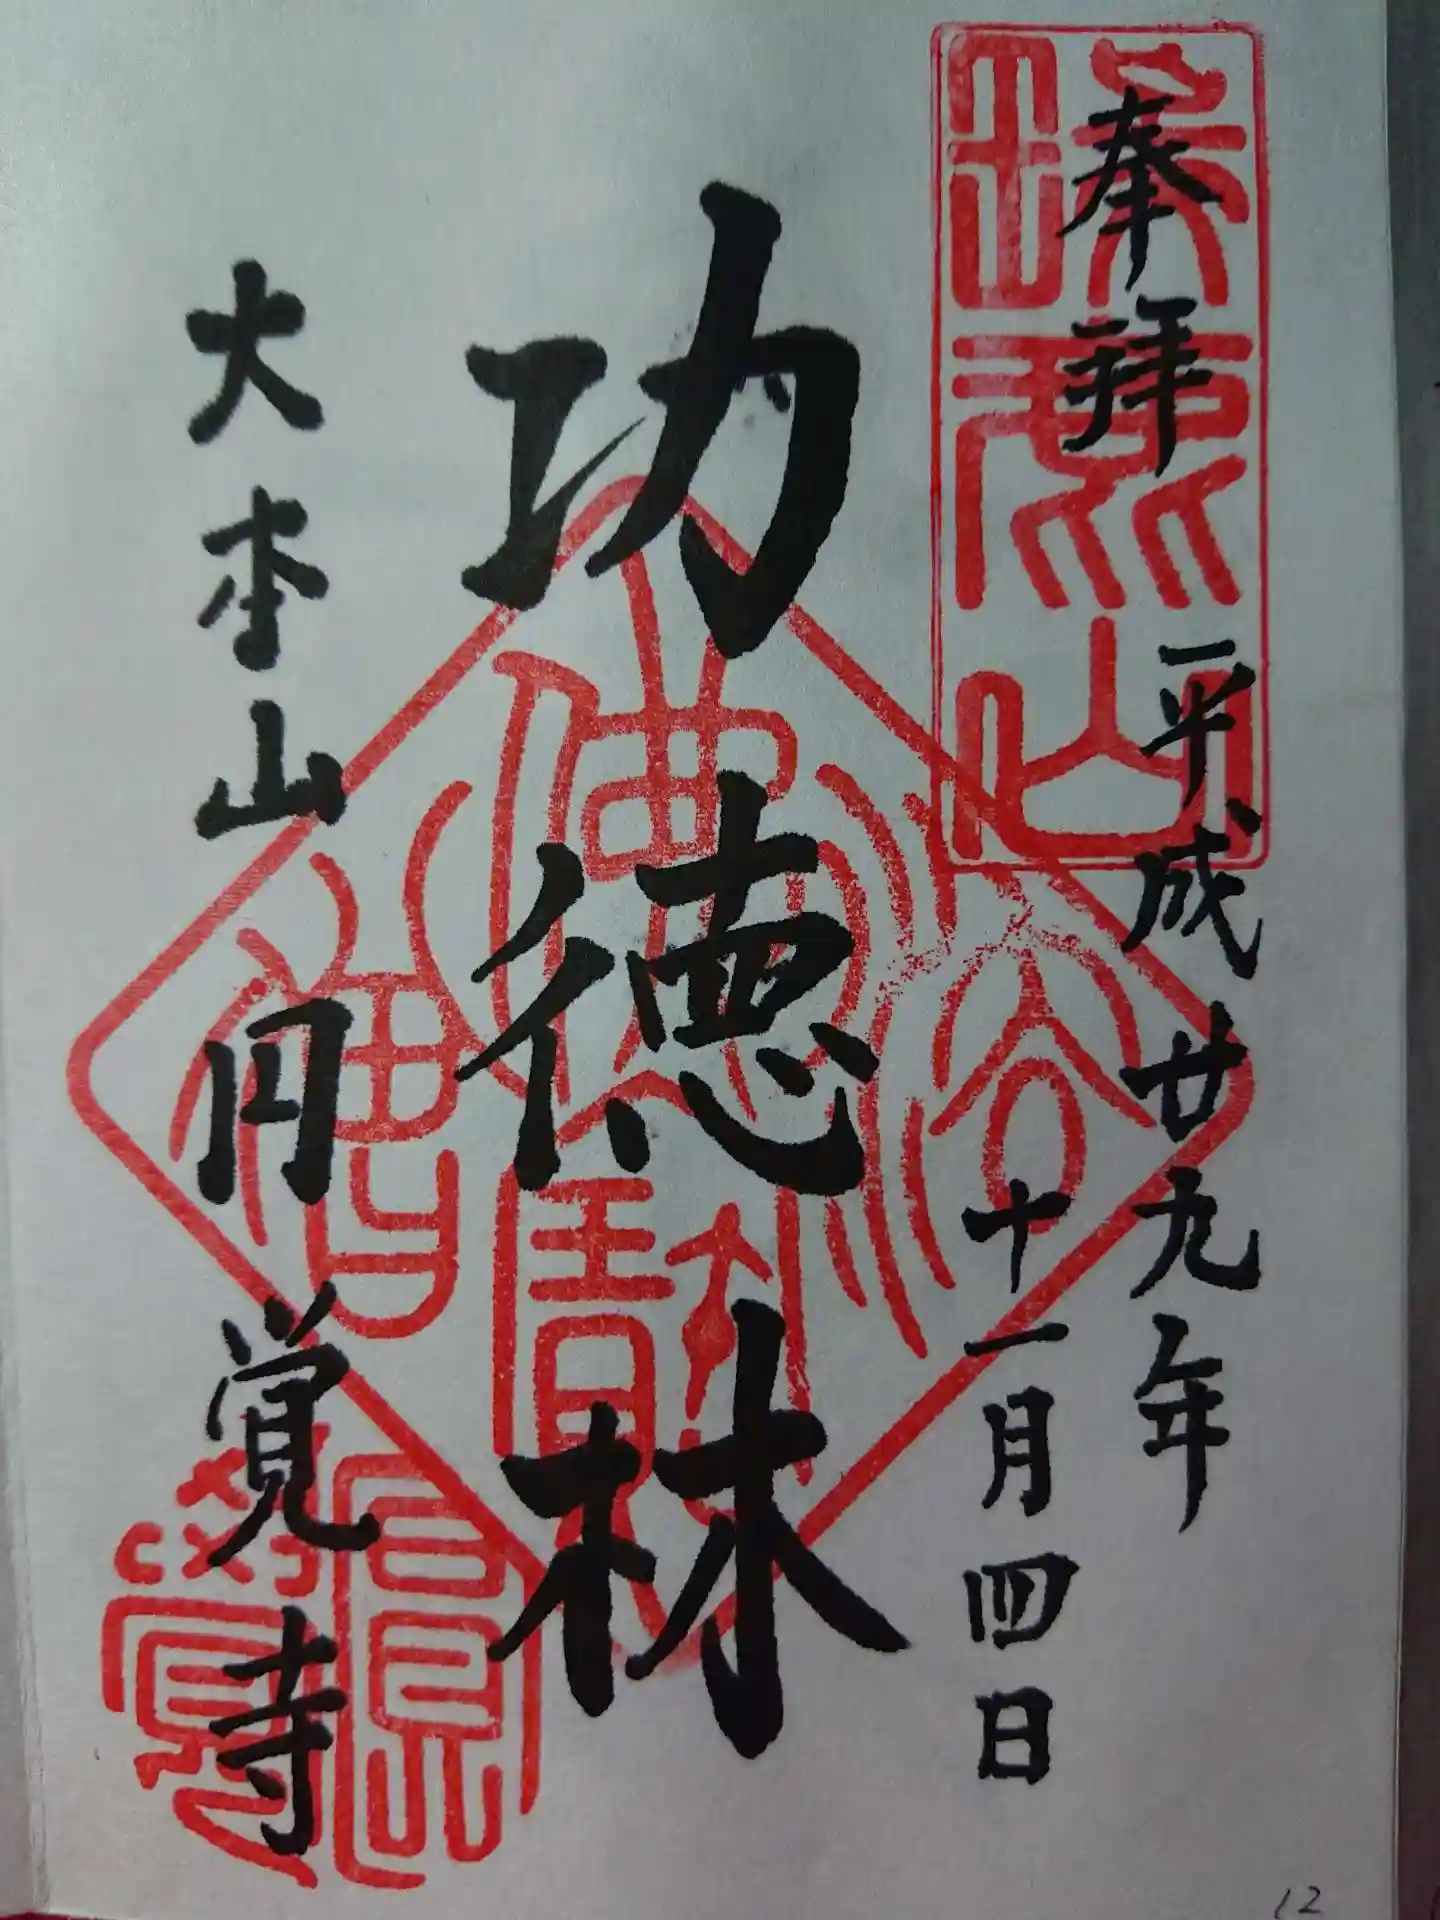 奉拝
平成廿九年
十一月四日
功徳林
大本山円覚寺
瑞鹿山
佛法僧寶
12